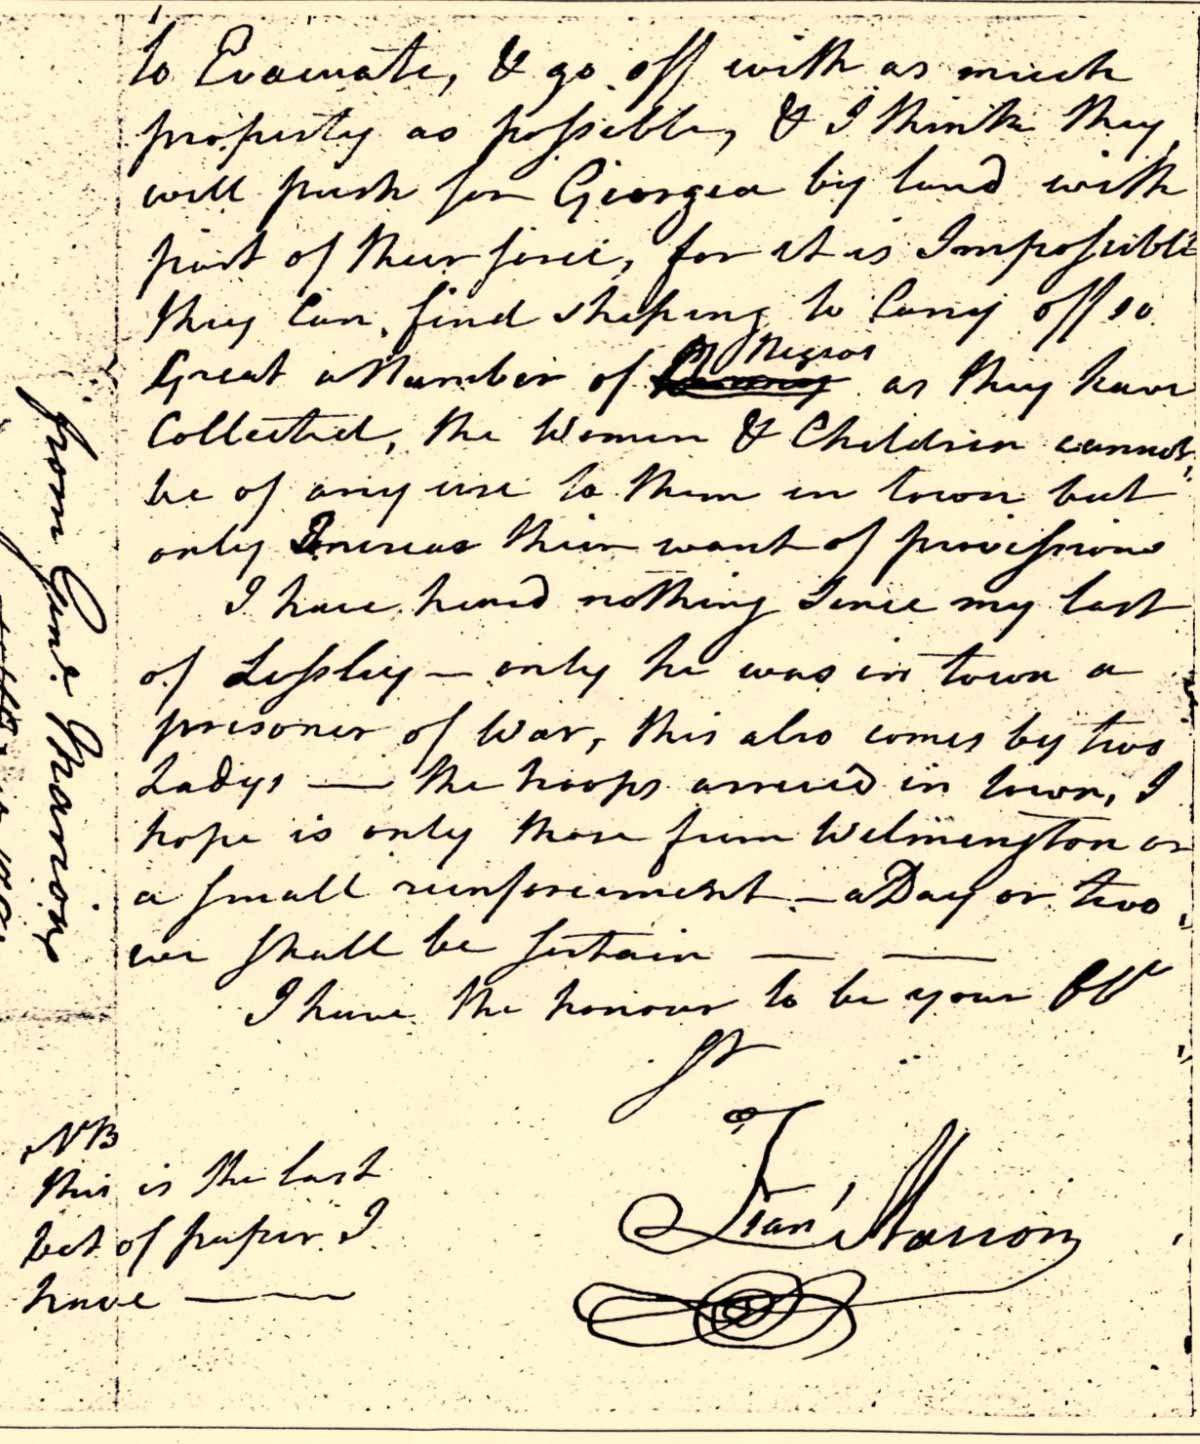 to Evacuate, & go off with as much
property as possible, & I think they
will push for Georgea by land with
part of their force, for it is Impossible
they Can find sheping to Carry off so
Great a Number of Negroes as they have
Collected, the Women & Children cannot
be of any use to them in town but
only Increas their want of provissions
I have heard nothing Sence my last
of Lessley — only he was in town a
prisoner of War, this also comes by two
Ladys — the troops arrived in town, I
hope is only those from Welmington or
a small reinforcement — a Day or two
we shall be sertain — —
I have the honour to be your Obt
St
Fran Marion
NB
this is the last
bet of paper I
have —
from Genl Marion